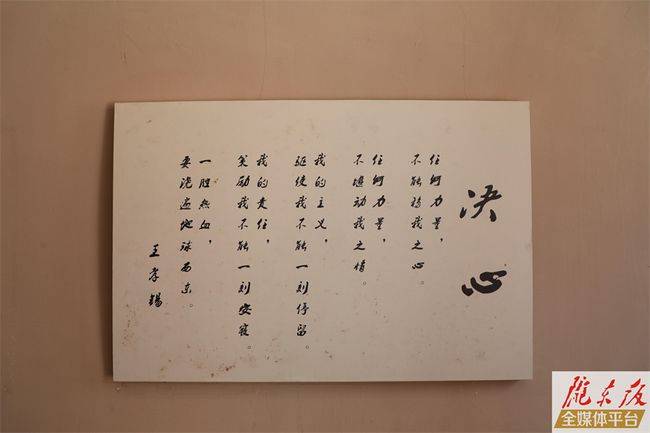 决心
任何力量，
不能移我之心。
任何力量，
不动我之情。
我的主义，
驱使我不能一刻停留。
我的责任，
奖励我不能一刻安寝。
一腔热血，
要浇遍地球西东。
王孝锡
陇东报
全媒体平台